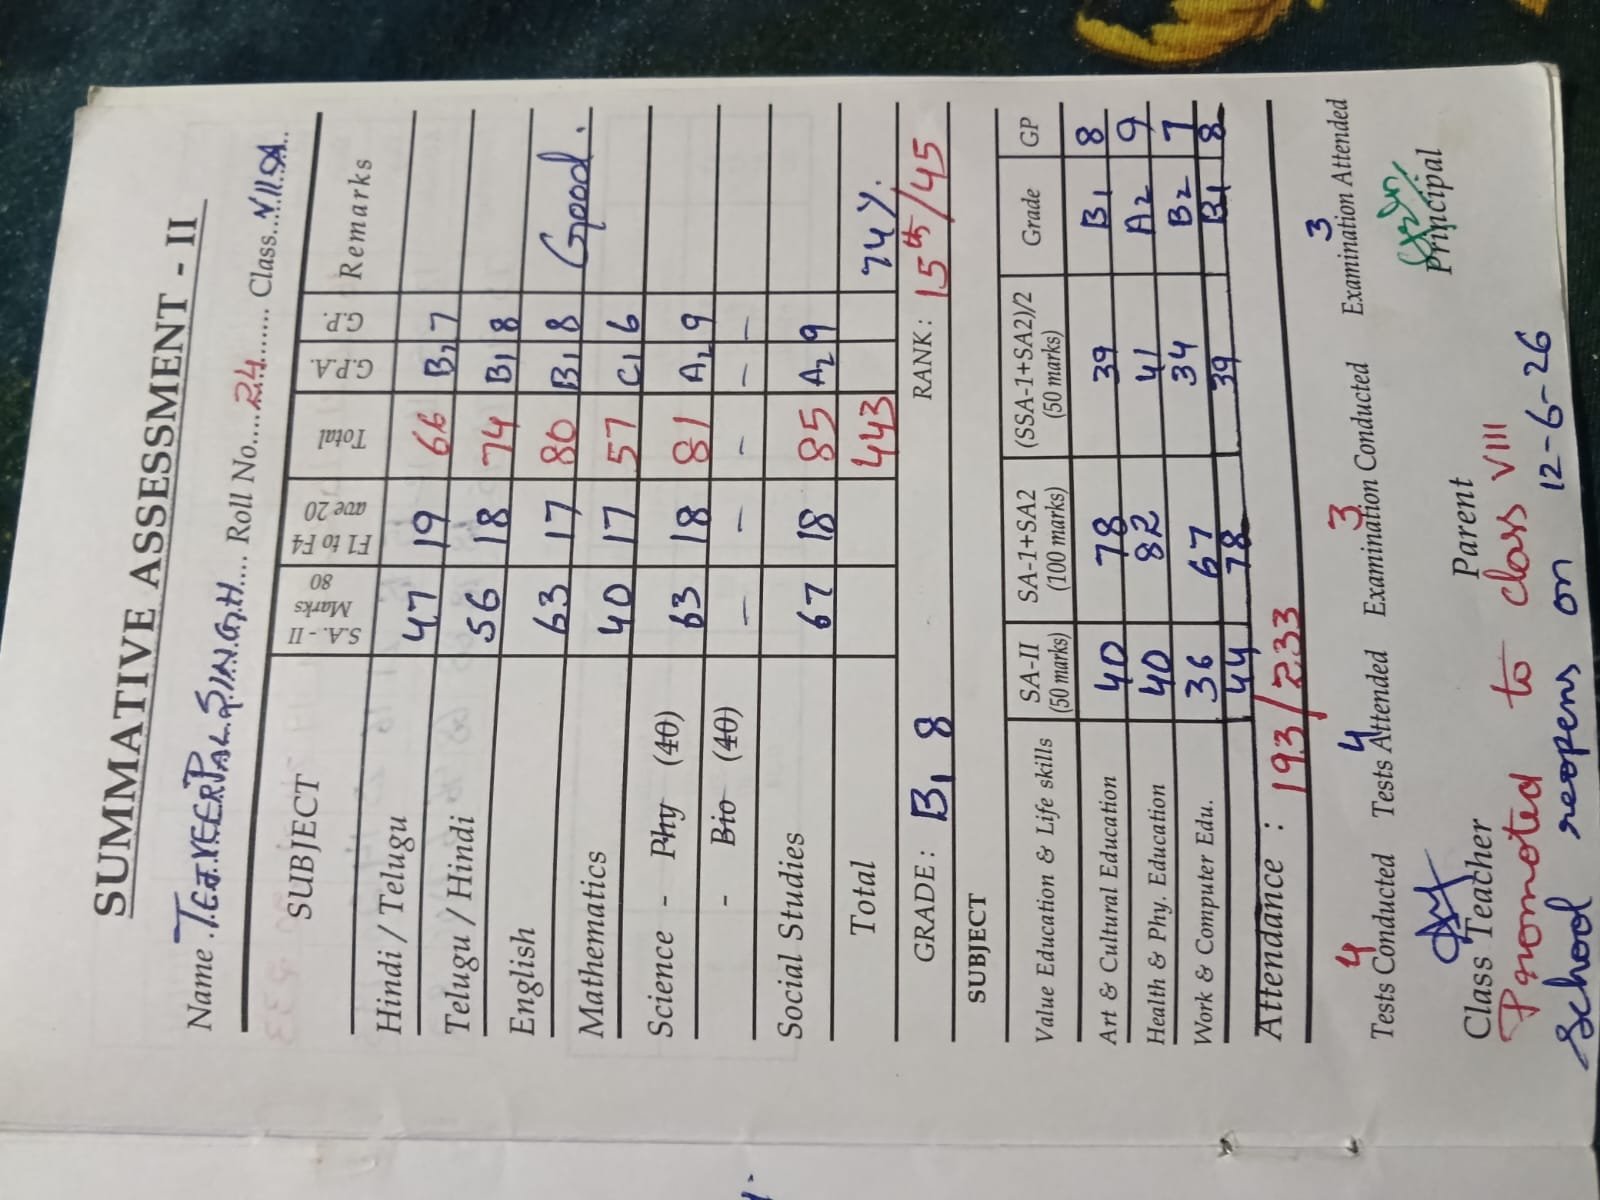 SUMMATIVE ASSESSMENT - II
Name. TEJVEERPAL SINGH.... Roll No....24......... Class...VII 'A'...
SUBJECT S.A. - II Marks 80 F1 to F4 ave 20 Total G.P.A. G.P. Remarks
Hindi / Telugu 47 19 66 B2 7
Telugu / Hindi 56 18 74 B1 8
English 63 17 80 B1 8 Good.
Mathematics 40 17 57 C1 6
Science - Phy (40) 63 18 81 A2 9
- Bio (40) - - - - -
Social Studies 67 18 85 A2 9
Total 443 74%.
GRADE : B1 8 RANK : 15th/45
SUBJECT SA-II (50 marks) SA-1+SA2 (100 marks) (SSA-1+SA2)/2 (50 marks) Grade GP
Value Education & Life skills 40 78 39 B1 8
Art & Cultural Education 40 82 41 A2 9
Health & Phy. Education 36 67 34 B2 7
Work & Computer Edu. 44 78 39 B1 8
Attendance : 193/233
4 4 3 3
Tests Conducted Tests Attended Examination Conducted Examination Attended
Class Teacher Parent Principal
Promoted to class VIII
School reopens on 12-6-26